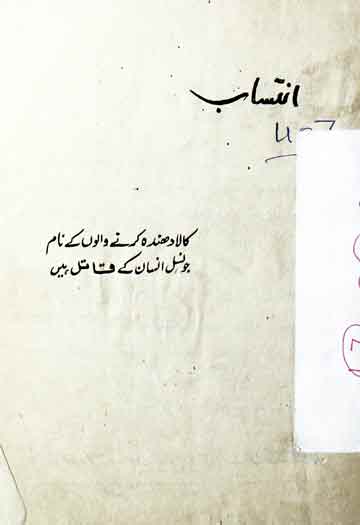 انتساب
کالا دھندہ کرنے والوں کے نام
جو نسل انسان کے قاتل ہیں